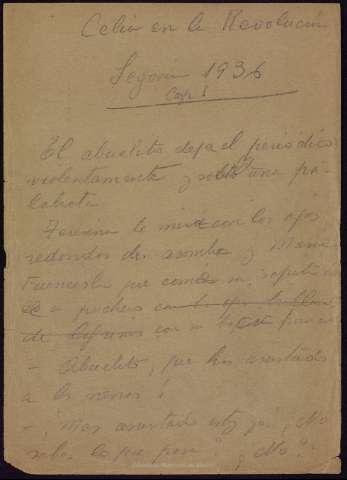 Celia en la Revolución
Segovia 1936
Cap. I
El abuelito deja el periódico
violentamente y suelta una pa-
labrota.
Teresina le mira con los ojos
redondos de asombro y María
Fuencisla que come su sopita
a pucheros
de lágrimas con su
- Abuelito, que has asustado
a las nenas!
- ¡Mas asustado estoy yo! ¿No
sabes lo que pasa? ¿No?